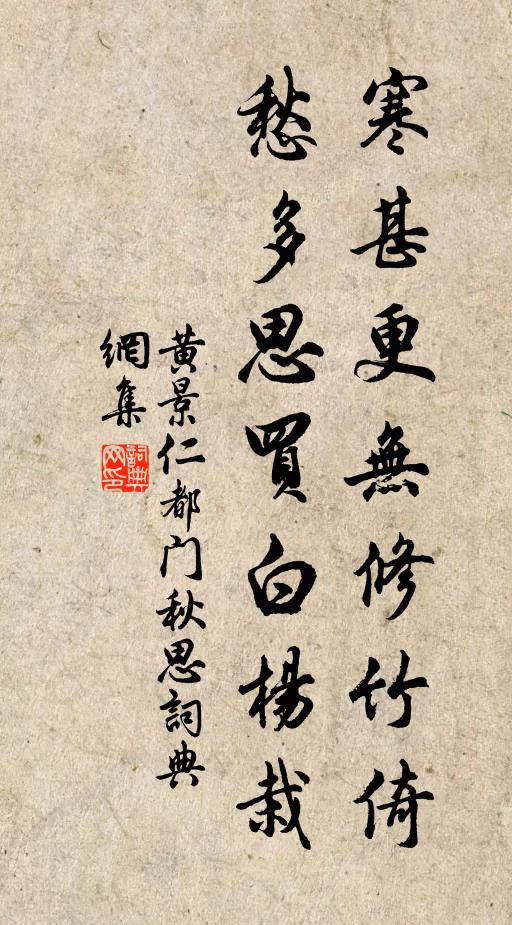 寒甚更無修竹倚
愁多思買白楊栽
黃景仁都门秋思詞典
網集
詞典網印